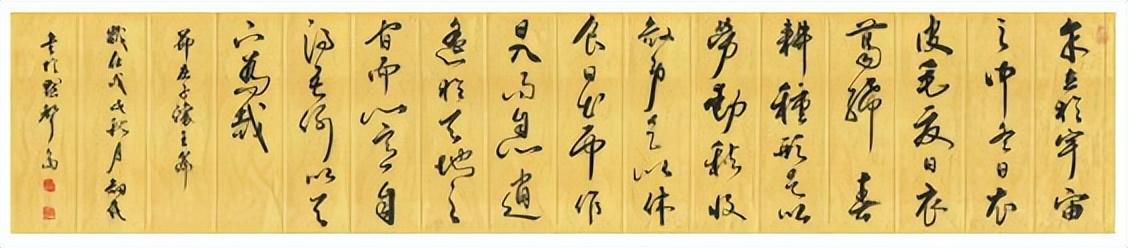 余立於宇宙
之中冬日衣
皮毛夏日衣
葛絺春
耕種形足以
勞動秋收
斂身足以休
食日出而作
日入而息逍
遙於天地之
間而心意自
得吾何以天
下為哉
節莊子讓王篇
歲在戊戌秋月
書於